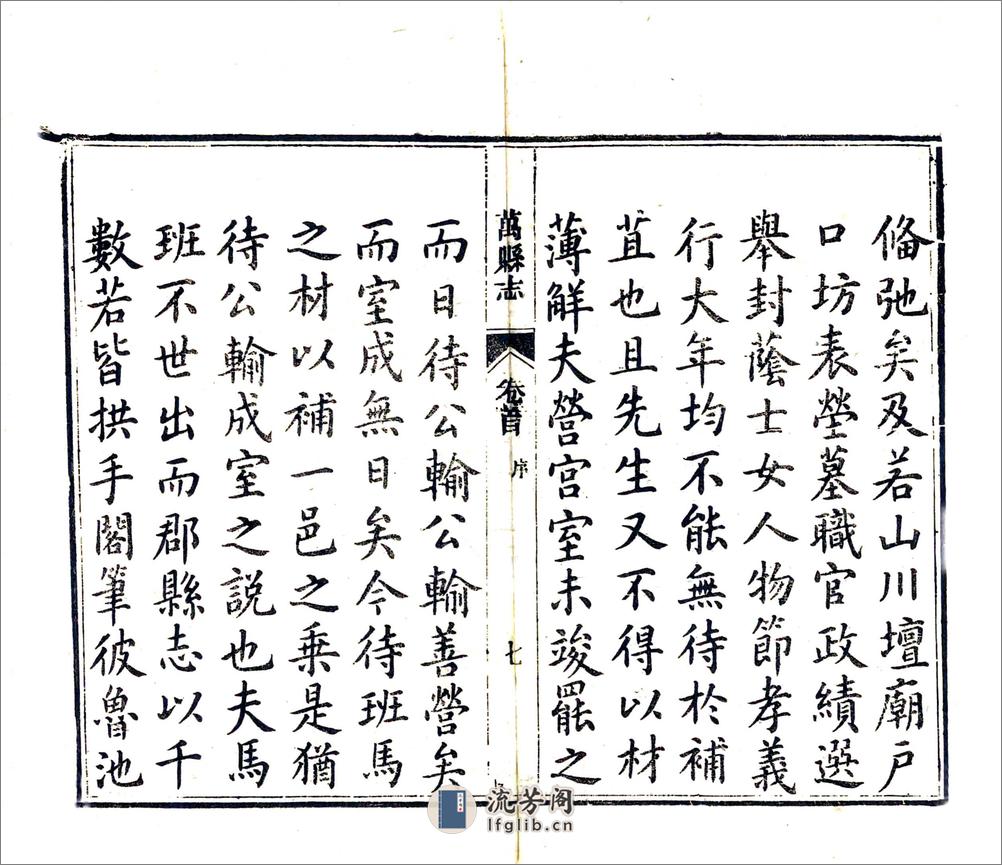 俻弛矣及若山川壇廟戶
口坊表塋墓職官政績選
舉封蔭士女人物節孝義
行大年均不能無待於補
苴也且先生又不得以材
薄觧夫營宮室未竣罷之
萬縣志 卷首 序 七
而日待公輸公輸善營矣
而室成無日矣今待班馬
之材以補一邑之乗是猶
待公輸成室之説也夫馬
班不世出而郡縣志以千
數若皆拱手閣筆彼魯池
流芳阁
lfglib.cn